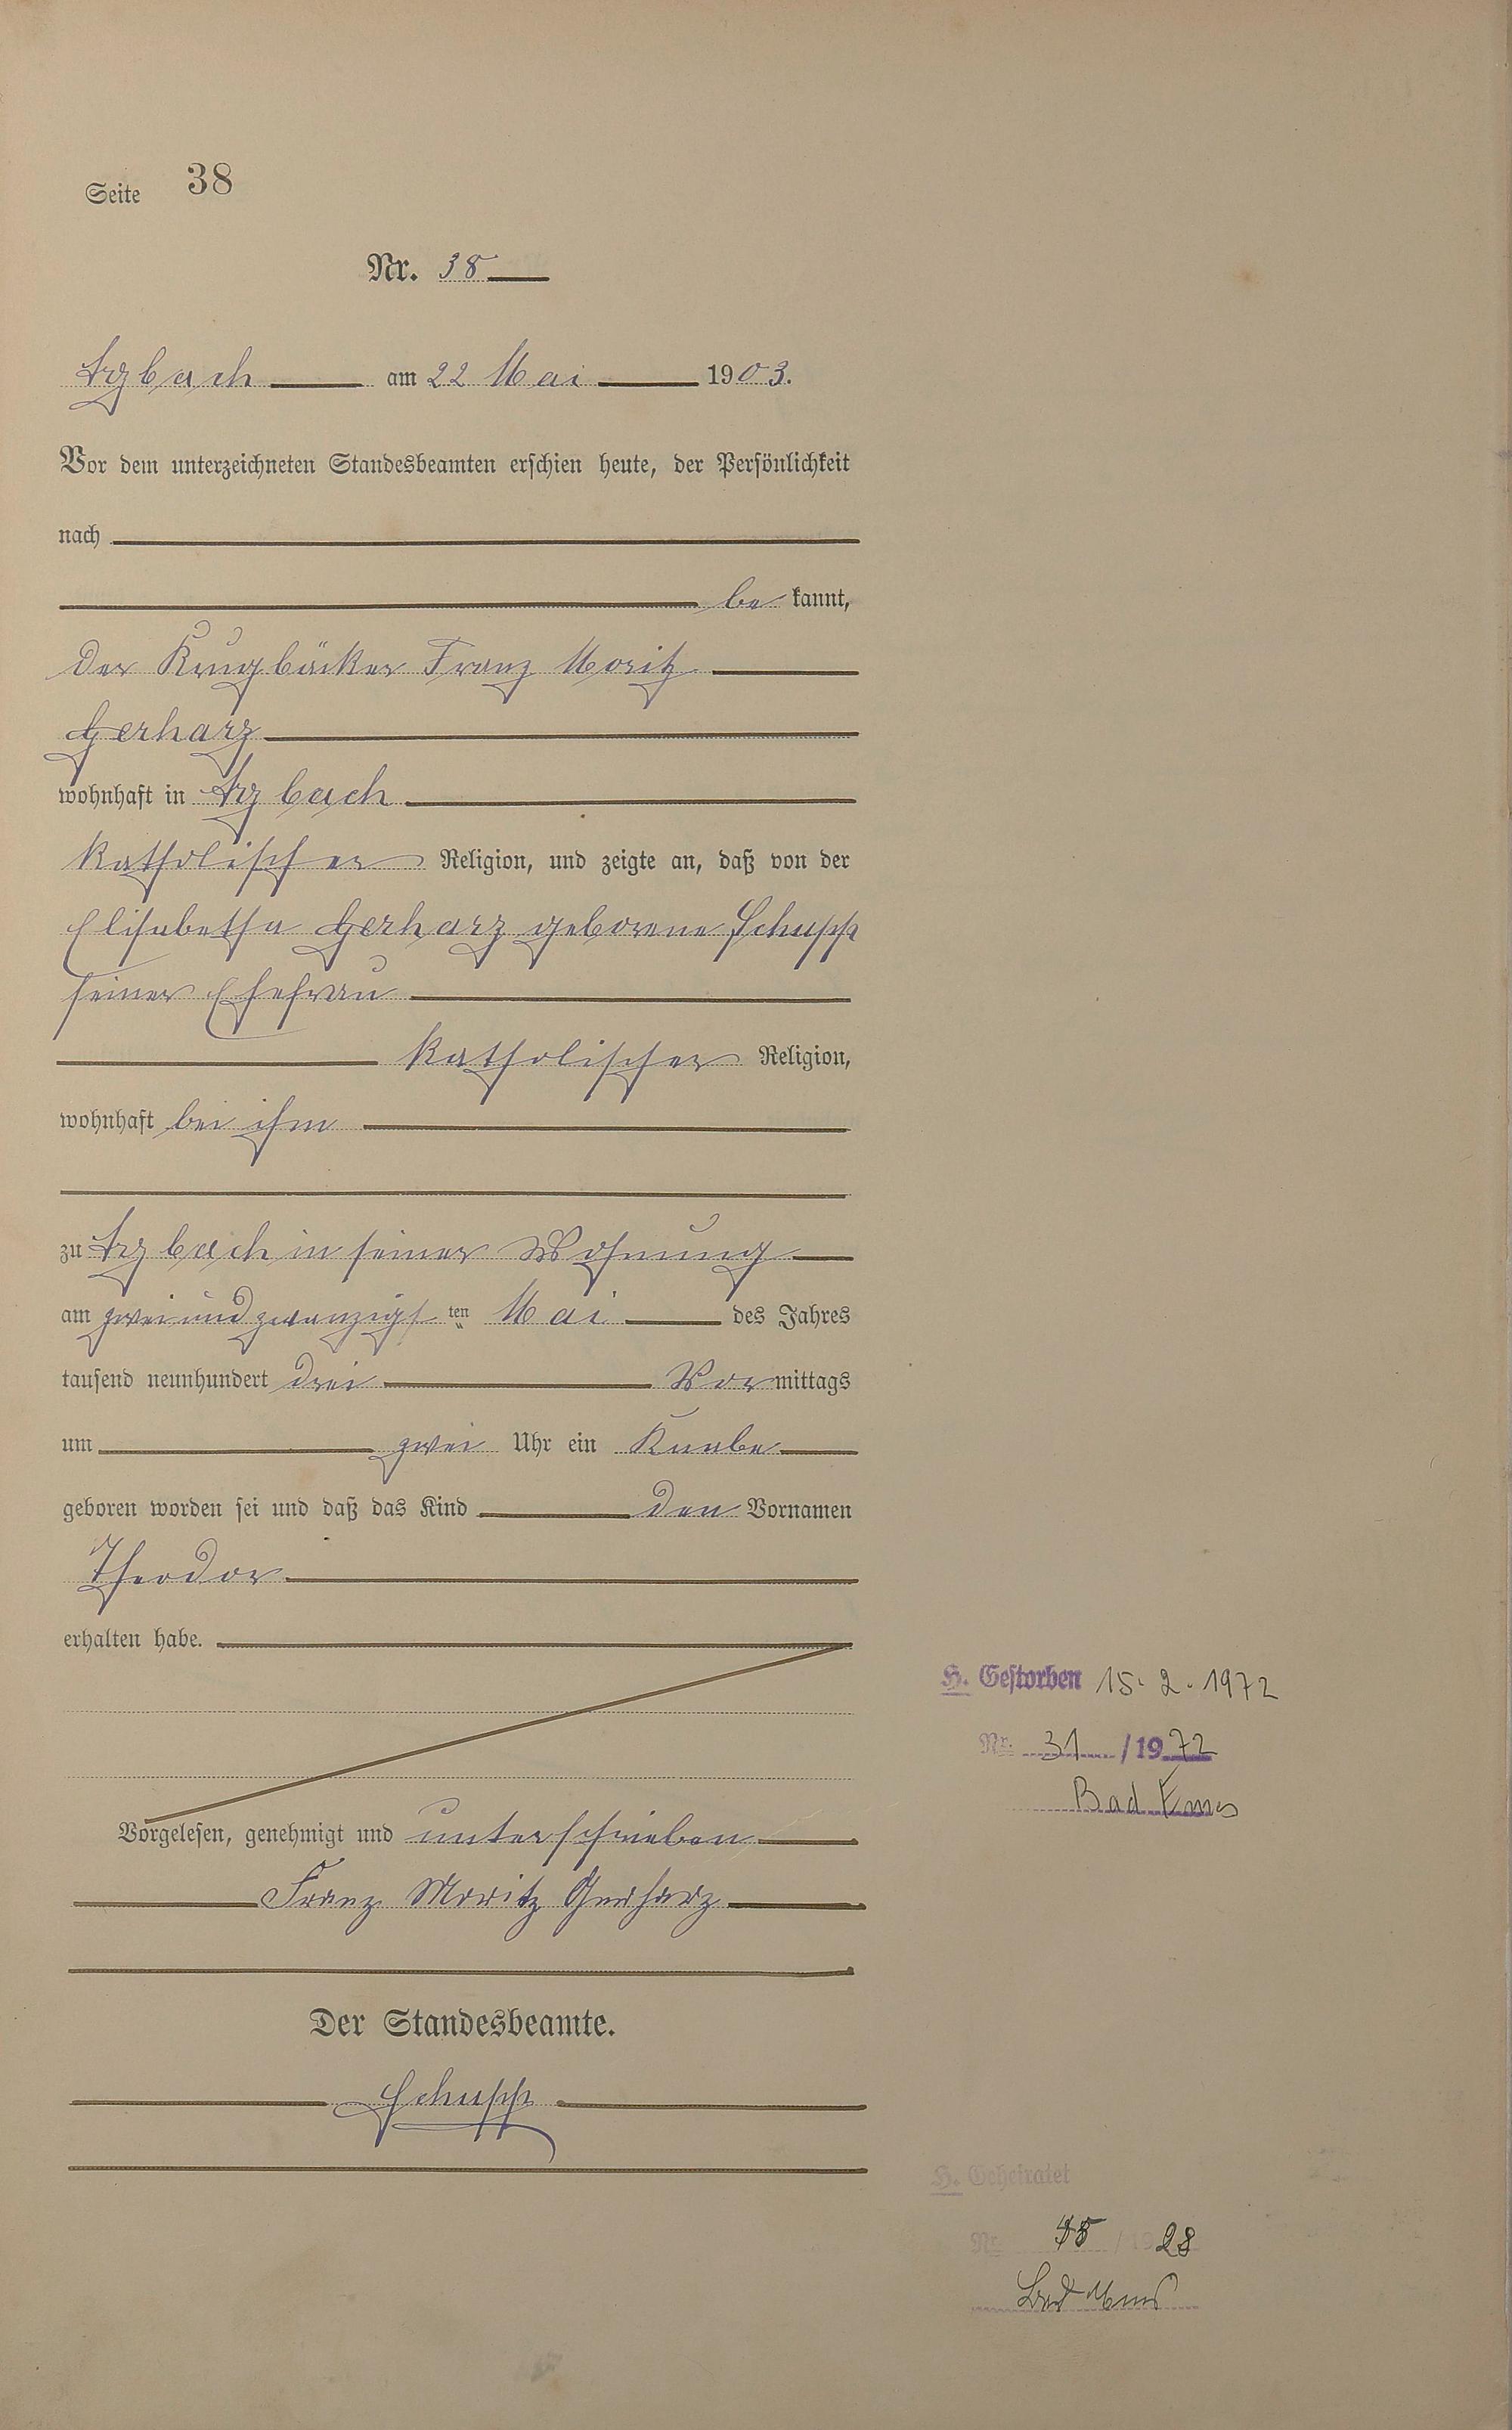 Seite 38
Nr. 38
Arzbach am 22 Mai 1903.
Vor dem unterzeichneten Standesbeamten erschien heute, der Persönlichkeit
nach
be kannt,
der Krugbäcker Franz Moritz
Gerharz
wohnhaft in Arzbach
katholischer Religion, und zeigte an, daß von der
Elisabetha Gerharz geborene Schupp
seiner Ehefrau
katholischer Religion,
wohnhaft bei ihm
zu Arzbach in seiner Wohnung
am zwei und zwanzigsten Mai des Jahres
tausend neunhundert drei Vormittags
um zwei Uhr ein Knabe
geboren worden sei und daß das Kind den Vornamen
Theodor
erhalten habe.
H. Gestorben 15.2.1972
Nr. 31 /1972
Bad Ems
Vorgelesen, genehmigt und unterschrieben
Franz Moritz Gerharz
Der Standesbeamte.
Schupp
H. Geheiratet
Nr. / 1928
Bad Ems